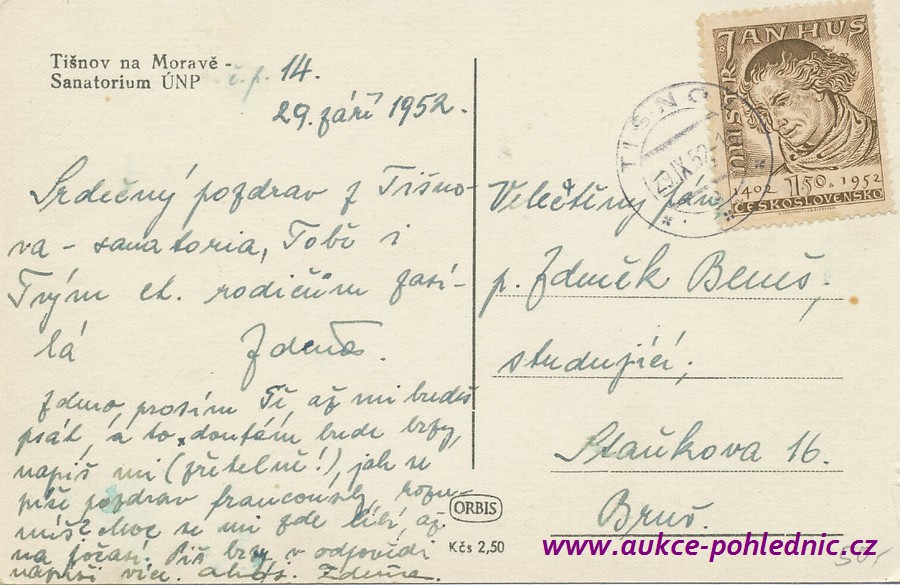 Tišnov na Moravě -
Sanatorium ÚNP č.p. 14.
29. září 1952.
Srdečný pozdrav z Tišno-
va - sanatoria, Tobě i
Tvým ct. rodičům zasí-
lá Zdena.
Zdeno, prosím Tě, až mi budeš
psát, a to, doufám bude brzy,
napiš mi (zřetelně!), jak se
píše pozdrav francouzsky, rozu-
míš? Moc se mi zde líbí, až
na počasí. Piš brzy v odpovědi
napíši více. Zdena.
MISTR JAN HUS
1402 1.50 1952
ČESKOSLOVENSKO
TIŠNOV
Velectěný pan
p. Zdeněk Beneš,
studující,
Staňkova 16.
Brno.
ORBIS
Kčs 2,50
www.aukce-pohlednic.cz